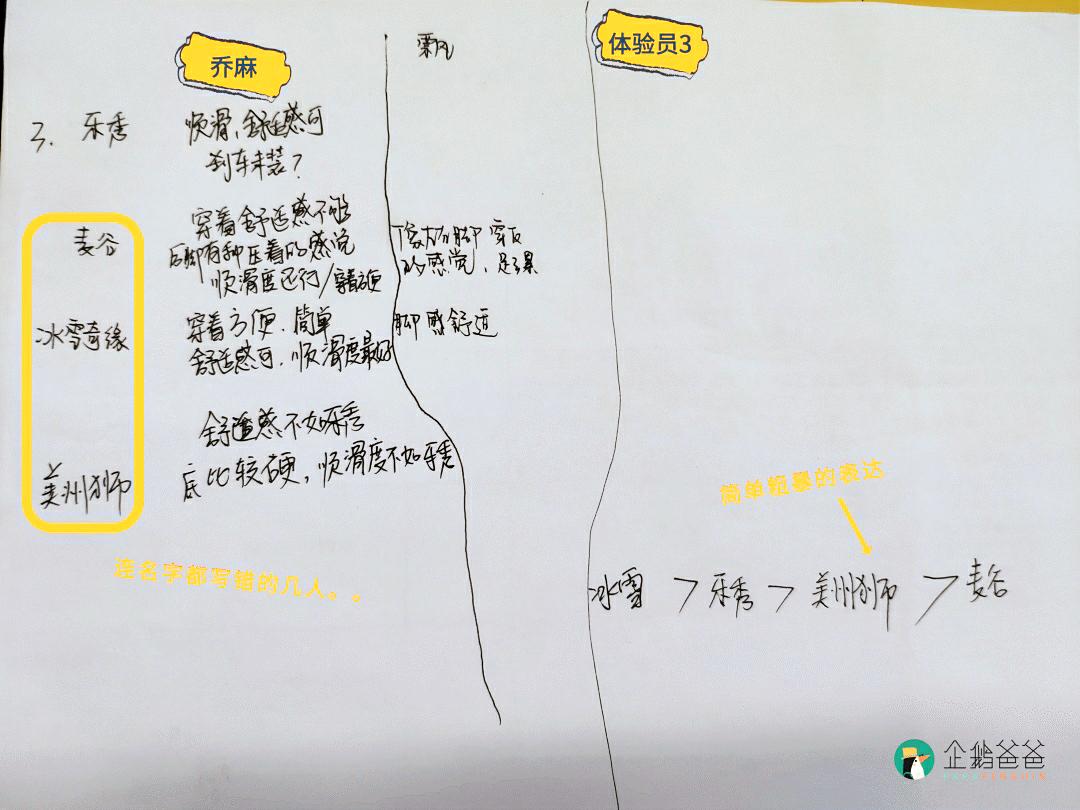 乔麻
体验员3
3. 乐秀
顺滑,舒适感可
刹车未装?
麦谷
穿着舒适感不够
后脚有种压着的感觉
顺滑度还行/穿着方便
的感觉,是多累
冰雪奇缘
穿着方便.简单
舒适感可.顺滑度最好
脚感舒适
美州狮
舒适感不如乐秀
底比较硬,顺滑度不如乐秀
连名字都写错的几人。。
简单粗暴的表达
冰雪 > 乐秀 > 美州狮 > 麦谷
企鹅爸爸
PAPAPENGUIN